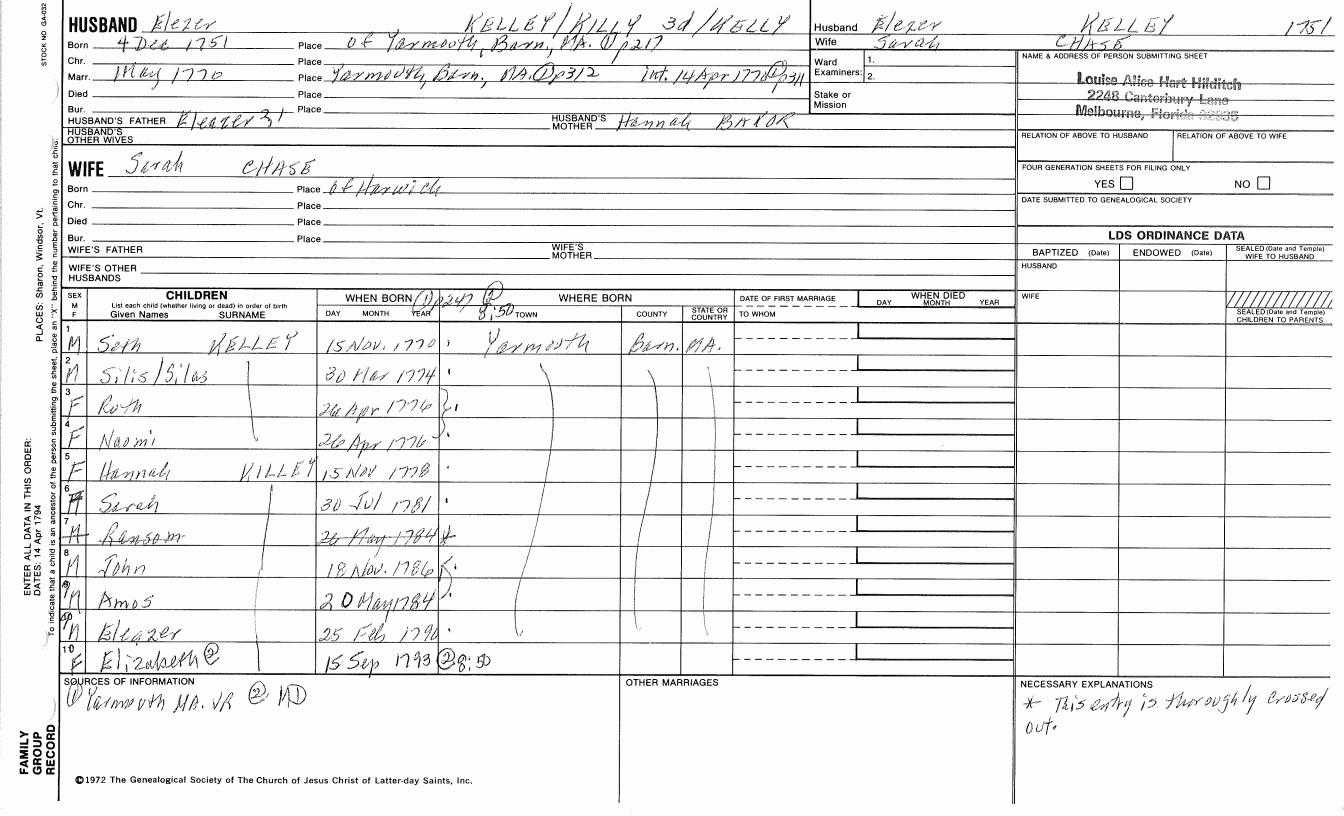 STOCK NO. GA-032
PLACES: Sharon, Windsor, Vt.
ENTER ALL DATA IN THIS ORDER:
DATES: 14 Apr 1794
To indicate that a child is an ancestor of the person submitting the sheet, place an "X" behind the number pertaining to that child.
FAMILY
GROUP
RECORD
HUSBAND Elezer KELLEY/KILLY 3d/KELLY
Born 4 Dec 1751 Place of Yarmouth, Barn, MA. ① p217
Chr. Place
Marr. May 1770 Place Yarmouth, Barn, MA. ① p312 Int. 14 Apr 1770 ① p311
Died Place
Bur. Place
HUSBAND'S FATHER Eleazer HUSBAND'S MOTHER Hannah
HUSBAND'S
OTHER WIVES
WIFE Sarah CHASE
Born Place of Harwich
Chr. Place
Died Place
Bur. Place
WIFE'S FATHER WIFE'S MOTHER
WIFE'S OTHER
HUSBANDS
Husband Elezer KELLEY 1751
Wife Sarah CHASE
Ward
Examiners: 1.
2.
Stake or
Mission
NAME & ADDRESS OF PERSON SUBMITTING SHEET
Louise Alice Hart Hilditch
2248 Canterbury Lane
Melbourne, Florida 32935
RELATION OF ABOVE TO HUSBAND RELATION OF ABOVE TO WIFE
FOUR GENERATION SHEETS FOR FILING ONLY
YES NO
DATE SUBMITTED TO GENEALOGICAL SOCIETY
LDS ORDINANCE DATA
BAPTIZED (Date) ENDOWED (Date) SEALED (Date and Temple) WIFE TO HUSBAND
HUSBAND
WIFE
SEALED (Date and Temple) CHILDREN TO PARENTS
SEX
M
F
CHILDREN
List each child (whether living or dead) in order of birth
Given Names SURNAME
WHEN BORN ① p247 ②
DAY MONTH YEAR 8:50
WHERE BORN
TOWN COUNTY STATE OR COUNTRY
DATE OF FIRST MARRIAGE
TO WHOM
WHEN DIED
DAY MONTH YEAR
1 M Seth KELLEY 15 Nov. 1770 Yarmouth Barn. MA.
2 M Silis/Silas 30 Mar 1774
3 F Ruth 26 Apr 1776
4 F Naomi 26 Apr 1776
5 F Hannah KILLEY 15 Nov 1778
6 F Sarah 30 Jul 1781
7 M Ransom 26 May 1784 *
8 M John 18 Nov. 1786
M Amos 20 May 1784
M Eleazer 25 Feb 1790
10 F Elizabeth ② 15 Sep 1793 ② 8:50
SOURCES OF INFORMATION
① Yarmouth MA. VR ② MD
OTHER MARRIAGES
NECESSARY EXPLANATIONS
* This entry is thoroughly crossed
out.
©1972 The Genealogical Society of The Church of Jesus Christ of Latter-day Saints, Inc.